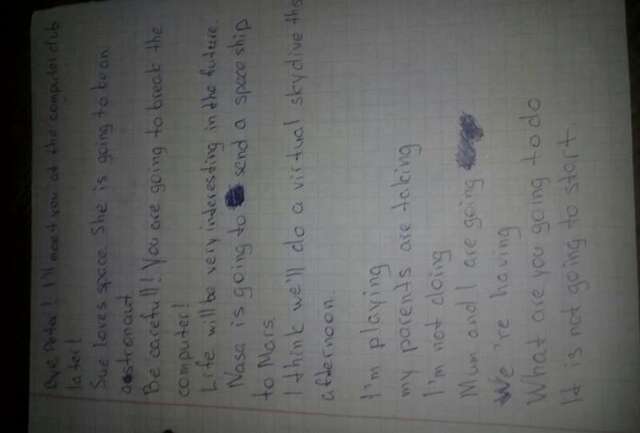 Bye Peta! I'll meet you at the computer club
later!
Sue loves space. She is going to be an
astronaut
Be carefull! You are going to break the
computer!
Life will be very interesting in the future.
Nasa is going to send a space ship
to Mars.
I think we'll do a virtual skydive this
afternoon.
I'm playing
my parents are taking
I'm not doing
Mum and I are going
We're having
What are you going to do
It is not going to start.